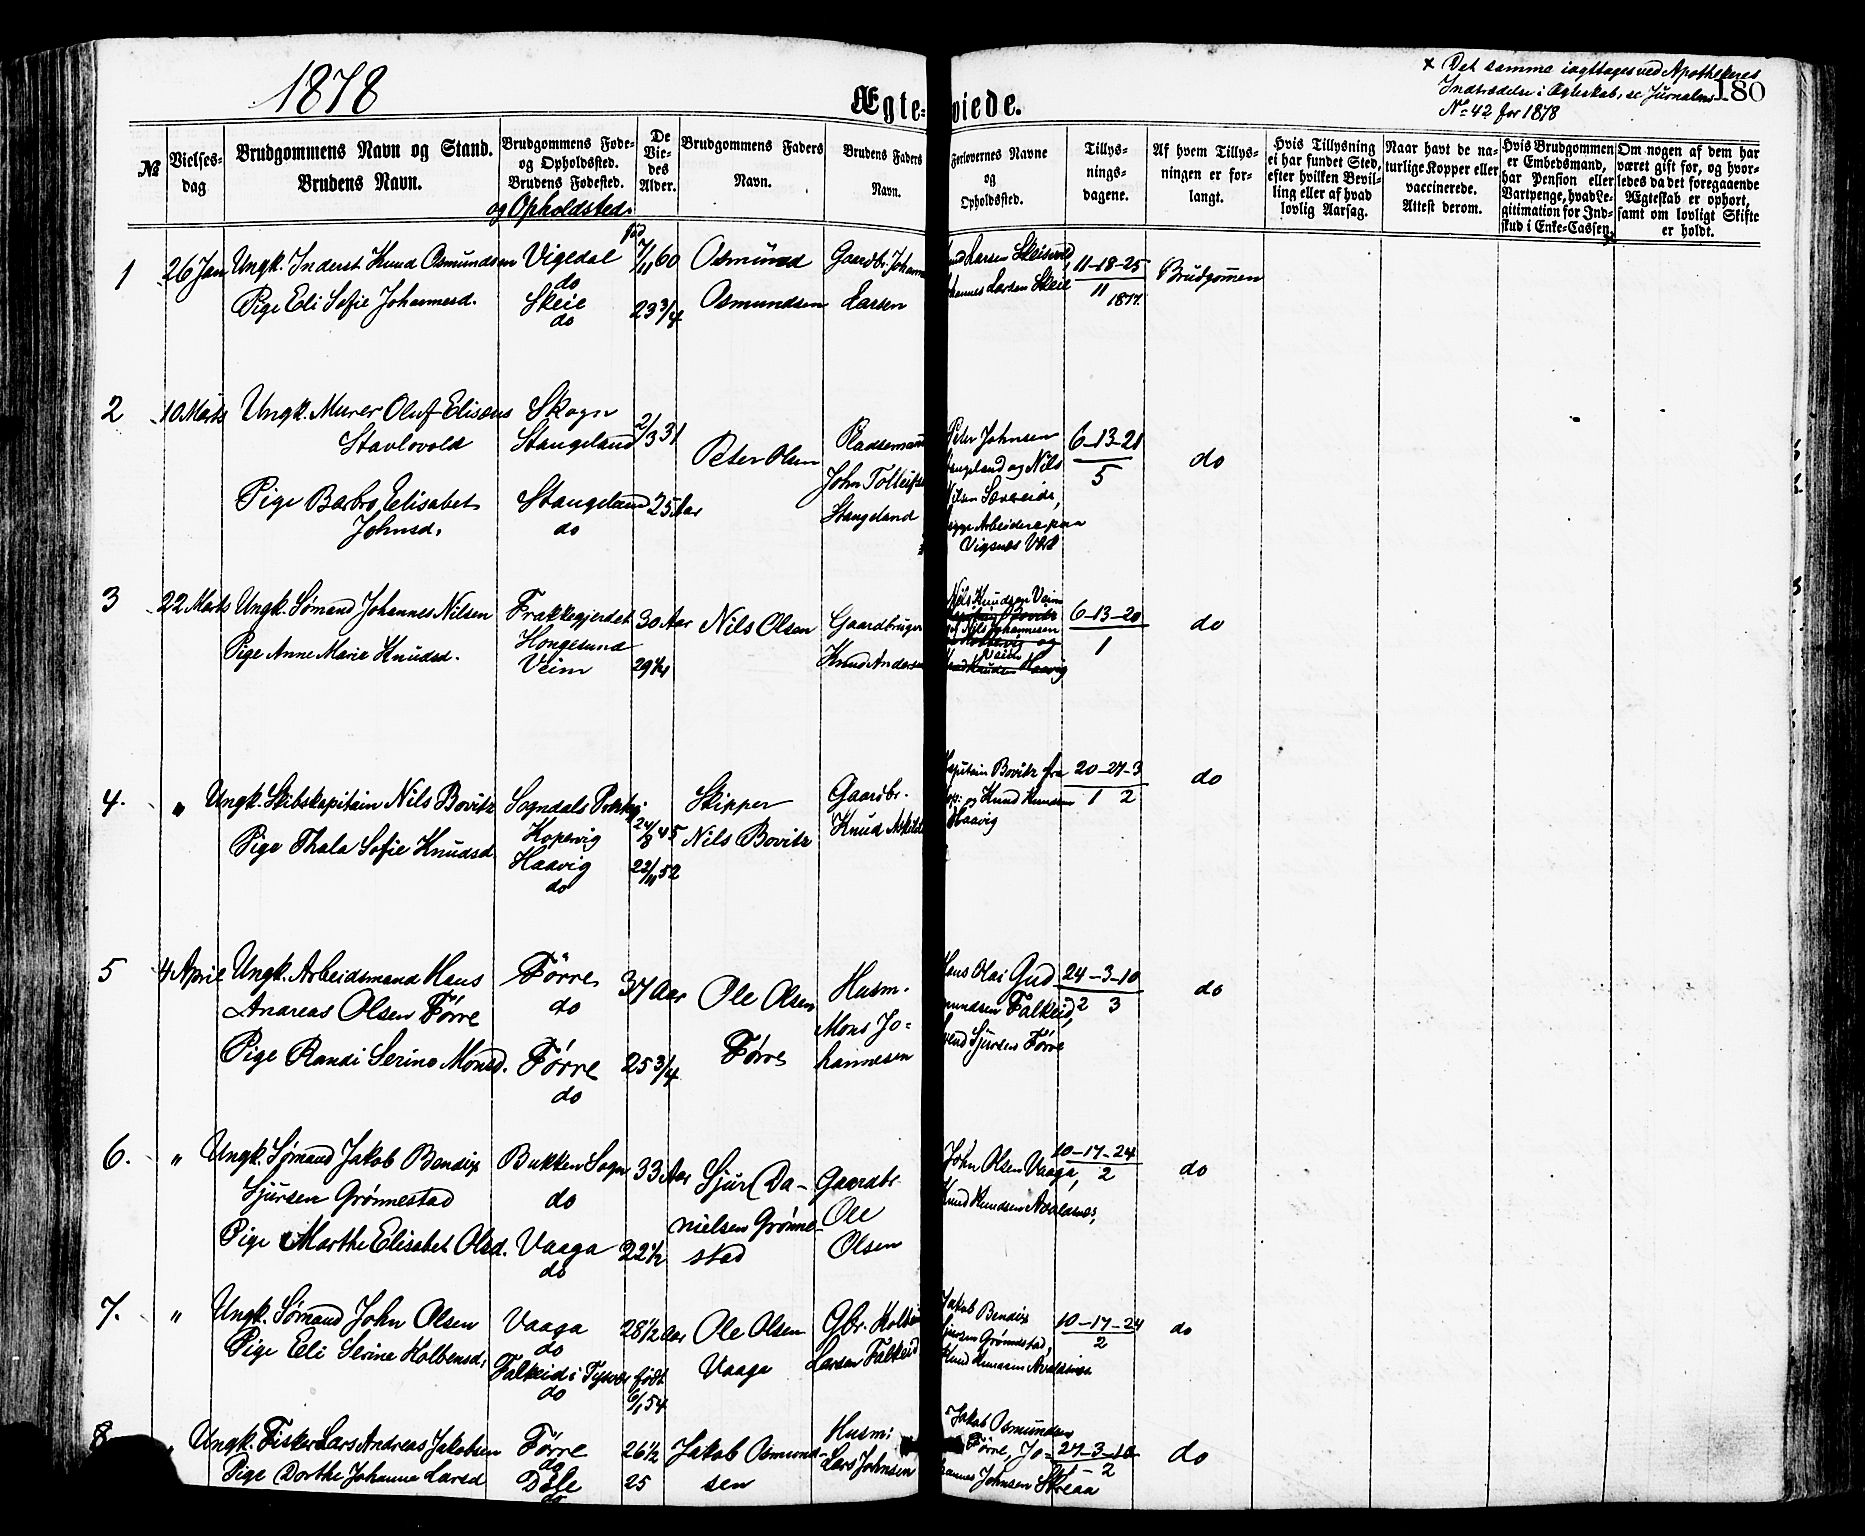 1878
Ægte-
viede.
180
x Det samme iagttages ved Apothekeres
Indtrædelse i Ægteskab, se Jurnalens
No 42 for 1878
No
Vielses-
dag
Brudgommens Navn og Stand.
Brudens Navn.
Brudgommens Føde-
og Opholdssted.
Brudens Fødested.
og Opholdsted.
De
Vie-
des
Alder.
Brudgommens Faders
Navn.
Brudens Faders
Navn.
Forlovernes Navne
og
Opholdssted.
Tillys-
nings-
dagene.
Af hvem Tillys-
ningen er for-
langt.
Hvis Tillysning
ei har fundet Sted,
efter hvilken Bevil-
ling eller af hvad
lovlig Aarsag.
Naar havt de na-
turlige Kopper eller
vaccinerede.
Attest derom.
Hvis Brudgommen
er Embedsmand,
har Pension eller
Vartpenge, hvad Le-
gitimation for Ind-
skud i Enke-Cassen.
x
Om nogen af dem har
været gift før, og hvor-
ledes da det foregaaende
Ægtestab er ophørt,
samt om lovligt Skifte
er holdt.
1
26 Jan
Ungk. Inderst Knud Osmundsen
Pige Eli Sofie Johannesd.
Vigedal
do
Skeie
do
fød
7/11 60
23 3/4
Osmund
Osmundsen
Gaardbr. Johannes
Larsen
Larsen Skeisvnd
Johannes Larsen Skeie
11-18-25
11
1877.
Brudgommen
2
10 Marts
Ungk. Murer Oluf Eliseus
Stavlovold
Pige Barbro Elisabet
Johnsd.
Skogn
Stangeland
Stangeland
do
2/3 31
25 Aar
Peter Olsen
Pladsemand
John Tolleifsen
Stangeland
Peter Johnsen
Stangeland og Nils
Nilsen Sæveide,
begge Arbeidere paa
Vigsnes Værk
6-13-21
5
do
3
22 Marts
Ungk. Sømand Johannes Nilsen
Pige Anne Marie Knudsd.
Frakkegjerdet
Hongesund
Veim
30 Aar
29 1/4
Nils Olsen
Gaardbruger
Knud Andersen
Nils Knudsen Veim
og Nils Johannesen
6-13-20
1
do
4.
"
Ungk. Skibskapitain Nils Bovitz
Pige Thala Sofie Knudsd.
Sogndals Prstgj.
Kopervig
Haavig
do
24/8 45
22/11 52
Skipper
Nils Bovitz
Gaardbr.
Knud
Kapitain Bovitz fra
Kop: og Knud Knudsen
Haavig
20-27-3
1 2
do
5
4 April
Ungk. Arbeidsmand Hans
Andreas Olsen Førre
Pige Randi Serine Monsd.
Førre
do
Førre
do
37 Aar
25 3/4
Ole Olsen
Førre
Husm.
Mons Jo-
hannesen
Hans Olai Gud
mundsen Falkeid,
Svend Sjursen Førre
24-3-10
2 3
do
6.
"
Ungk. Sømand Jakob Bendix
Sjursen Grønnestad
Pige Marthe Elisabet Olsd.
Bukken Sogn
do
Vaaga
do
33 Aar
22 1/2
Sjur Da-
nielsen Grønne-
stad
Gaardbr.
Ole
Olsen
John Olsen Vaaga,
Knud Knudsen Avaldsnes,
10-17-24
2
do
7.
"
Ungk. Sømand John Olsen
Pige Eli Serine Kolbensd.
Vaaga
do
Falkeid i Tysvær
do
28 1/2 Aar
født
6/1 54
Ole Olsen
Vaaga
Gbr. Kolben
Larsen Falkeid
Jakob Bendix
Sjursen Grønnestad,
Knud Knudsen Avaldsnes
10-17-24
2
do
8
"
Ungk. Fisker Lars Andreas Jakobsen
Pige Dorthe Johanne Larsd
Førre
do
Dale
do
26 1/2
25
Jakob Osmund-
sen
Husm:
Lars Johnsen
Jakob Osmundsen
Førre, Jo-
hannes Johnsen Skreaa
27-3-10
1-2
do